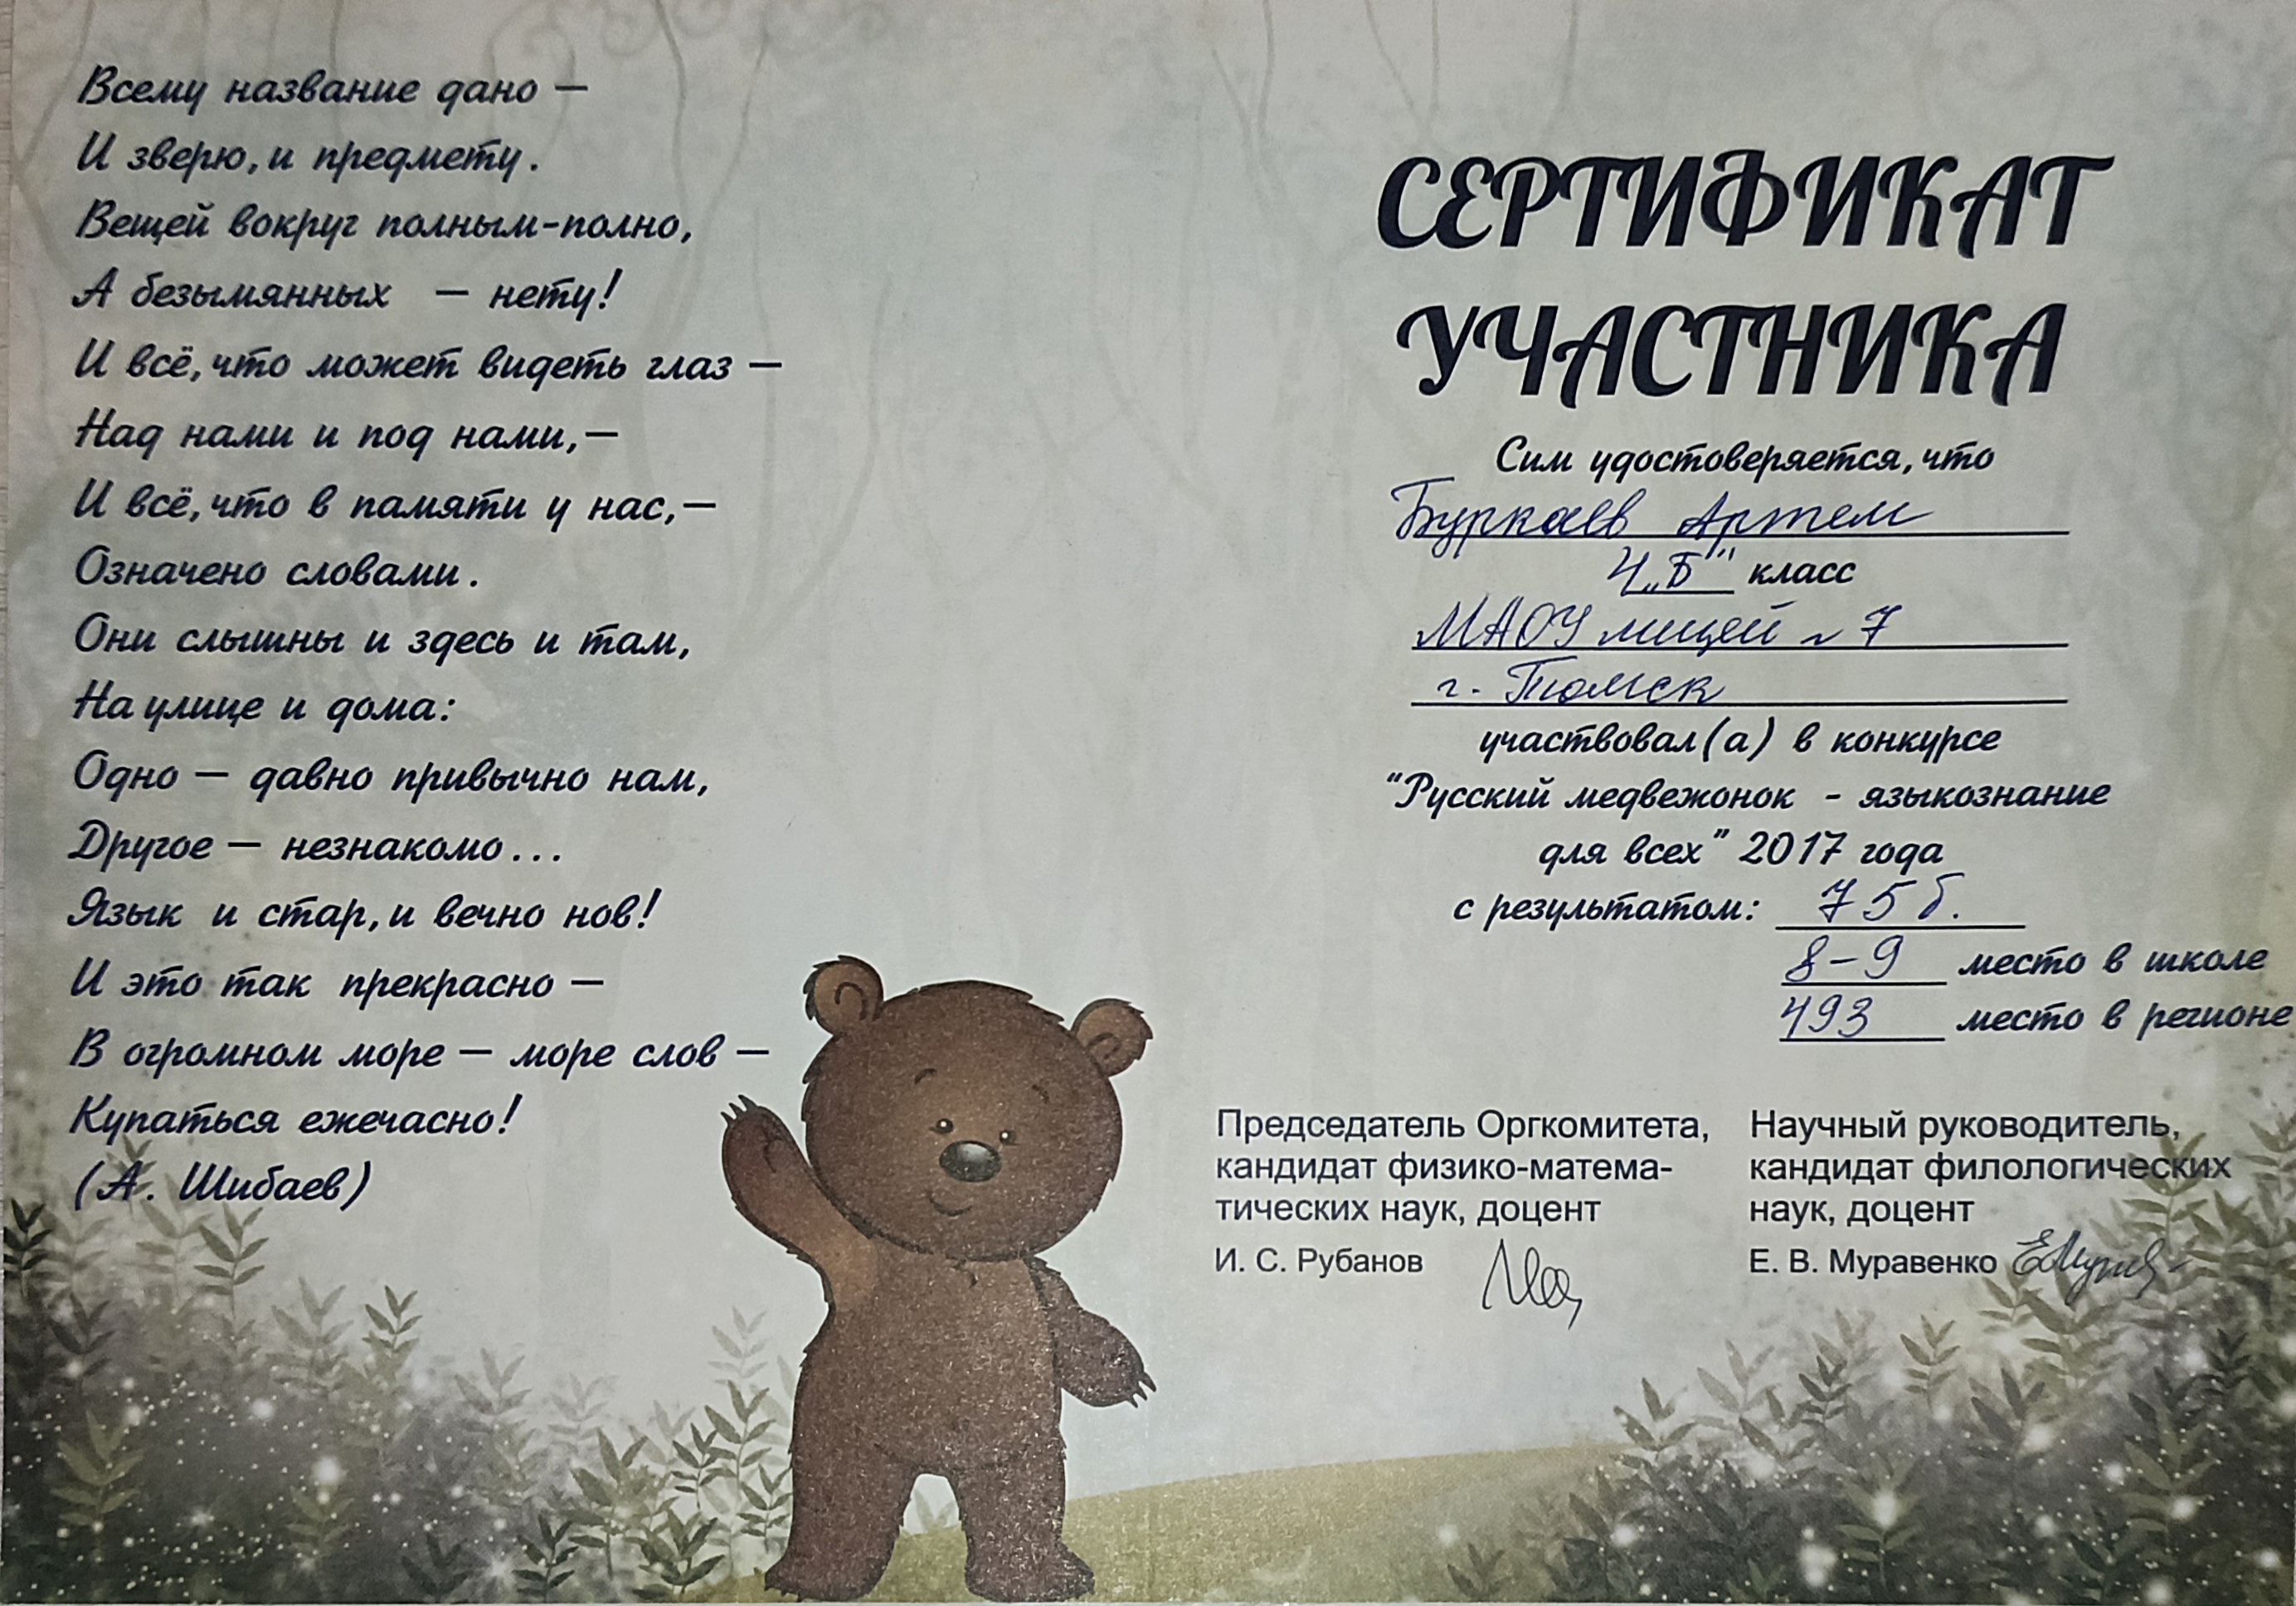 Всему название дано —
И зверю, и предмету.
Вещей вокруг полным-полно,
А безымянных — нету!
И всё, что может видеть глаз —
Над нами и под нами,—
И всё, что в памяти у нас,—
Означено словами.
Они слышны и здесь и там,
На улице и дома:
Одно — давно привычно нам,
Другое — незнакомо...
Язык и стар, и вечно нов!
И это так прекрасно —
В огромном море — море слов —
Купаться ежечасно!
(А. Шибаев)
СЕРТИФИКАТ
УЧАСТНИКА
Сим удостоверяется, что
Буркаев Артем
4 „Б" класс
МАОУ лицей № 7
г. Томск
участвовал(а) в конкурсе
"Русский медвежонок - языкознание
для всех" 2017 года
с результатом: 75 б.
8-9 место в школе
493 место в регионе
Председатель Оргкомитета,
кандидат физико-матема-
тических наук, доцент
И. С. Рубанов
Научный руководитель,
кандидат филологических
наук, доцент
Е. В. Муравенко